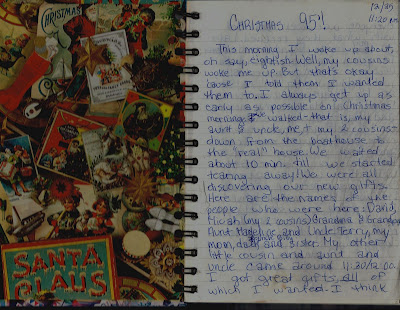 CHRISTMAS
SANTA
CLAUS
12/25
11:20 pm
CHRISTMAS 95!
This morning I woke up about,
oh say, eightish. Well, my cousins
woke me up. But that's okay
cause I told them I wanted
them to. I always get up as
early as possible on Christmas
morning. We walked - that is, my
aunt & uncle, me & my 2 cousins
down from the boathouse to
the "real" house. We waited
about 10 min. til we started
tearing away! We were all
discovering our new gifts.
Here are the names of the
people who were here: David,
Micah (my 2 cousins) Grandma & Grandpa,
Aunt and Uncle Terry, my
mom, dad, and sister. My other
little cousin and aunt and
uncle came around 11:30/12:00.
I got great gifts, all of
which I wanted. I think